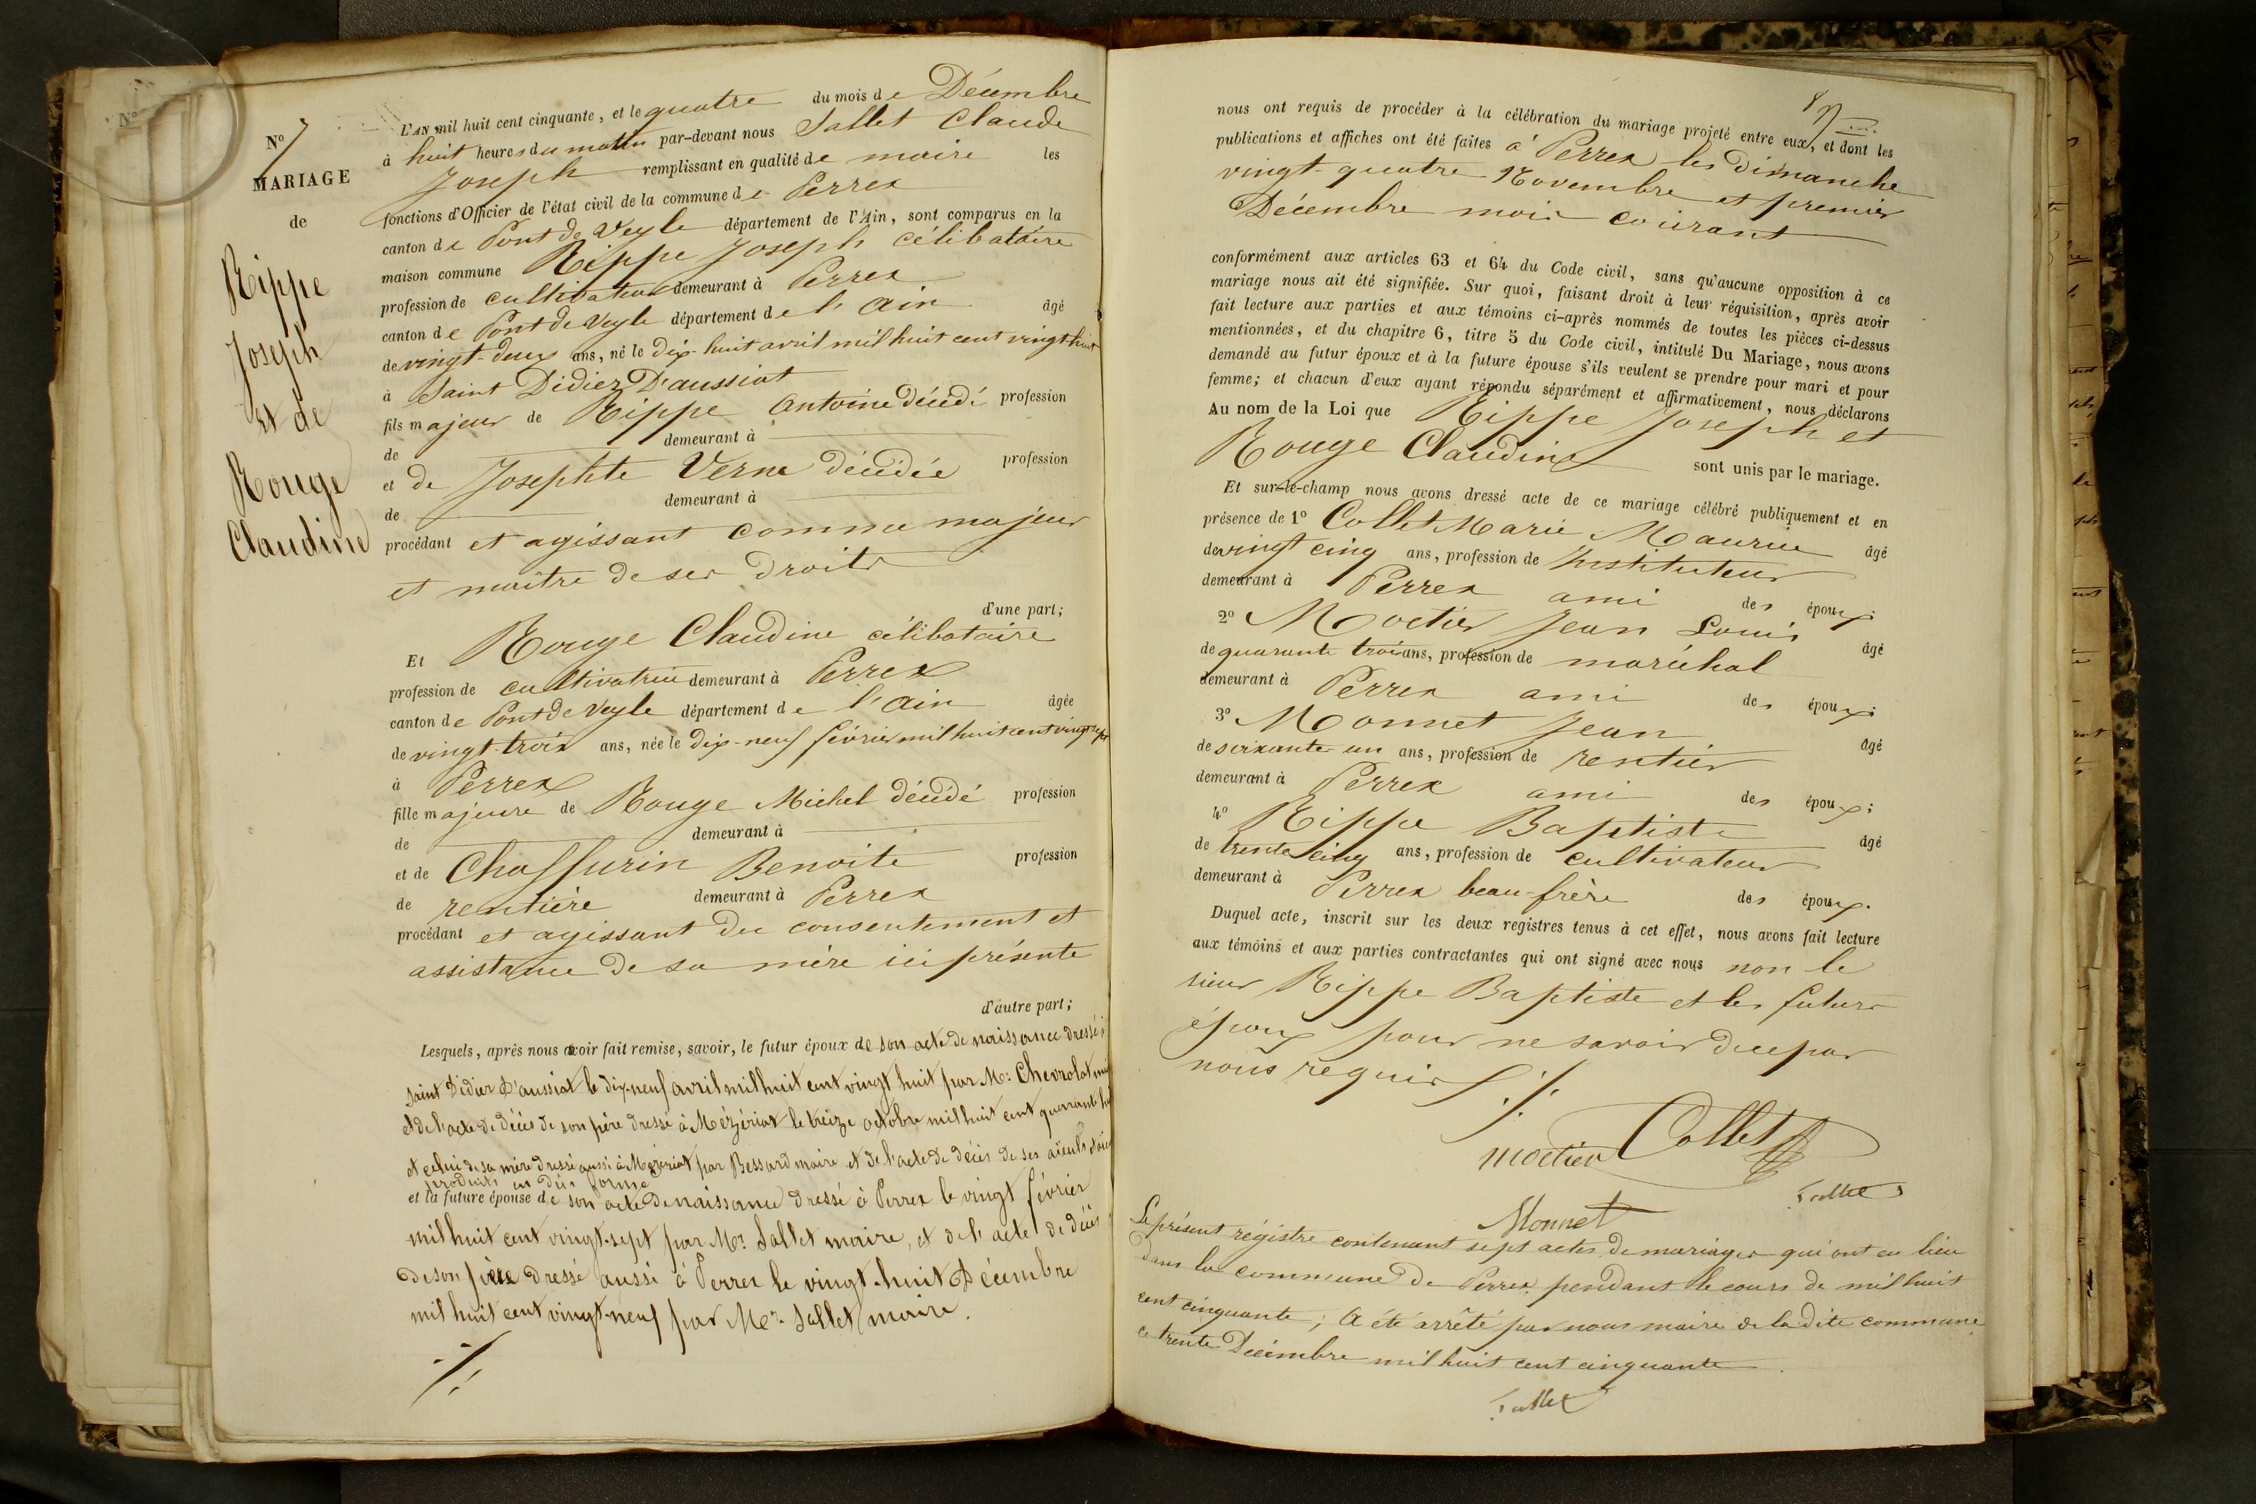 N°
N° 7
MARIAGE
de
Rippe
Joseph
et de
Rouge
Claudine
L'AN mil huit cent cinquante, et le quatre du mois de Décembre
à huit heures du matin par-devant nous Sallet Claude
Joseph remplissant en qualité de maire les
fonctions d'Officier de l'état civil de la commune de Perrex
canton de Pont de Veyle département de l'Ain, sont comparus en la
maison commune Rippe Joseph célibataire
profession de cultivateur demeurant à Perrex
canton de Pont de Veyle département de l'Ain âgé
de vingt-deux ans, né le dix-huit avril mil huit cent vingt huit
à Saint Didier D'aussiat
fils majeur de Rippe Antoine décédé profession
de demeurant à
et de Josephte Verne décédée profession
de demeurant à
procédant et agissant comme majeur
et maître de ses droits
d'une part;
Et Rouge Claudine célibataire
profession de cultivatrice demeurant à Perrex
canton de Pont de Veyle département de l'Ain âgée
de vingt-trois ans, née le dix-neuf février mil huit cent vingt sept
à Perrex
fille majeure de Rouge Michel décédé profession
de demeurant à
et de Chassurin Benoite profession
de rentière demeurant à Perrex
procédant et agissant du consentement et
assistance de sa mère ici présente
d'autre part;
Lesquels, après nous avoir fait remise, savoir, le futur époux de son acte de naissance dressé à
Saint Didier d'aussiat le dix-neuf avril mil huit cent vingt huit par Mr. Chevrolat
et de l'acte de décès de son père dressé à Mézériat le treize octobre mil huit cent quarante
et celui de sa mère dressé aussi à Mézériat par Bessard maire et de l'acte de décès de ses aïeuls
produits en due forme
et la future épouse de son acte de naissance dressé à Perrex le vingt février
mil huit cent vingt-sept par Mr. Sallet maire, et de l'acte de décès
de son père dressé aussi à Perrex le vingt-huit Décembre
mil huit cent vingt-neuf par Mr. Sallet maire.
nous ont requis de procéder à la célébration du mariage projeté entre eux, et dont les
publications et affiches ont été faites à Perrex les Dimanche
vingt-quatre Novembre et premier
Décembre mois courant
conformément aux articles 63 et 64 du Code civil, sans qu'aucune opposition à ce
mariage nous ait été signifiée. Sur quoi, faisant droit à leur réquisition, après avoir
fait lecture aux parties et aux témoins ci-après nommés de toutes les pièces ci-dessus
mentionnées, et du chapitre 6, titre 5 du Code civil, intitulé Du Mariage, nous avons
demandé au futur époux et à la future épouse s'ils veulent se prendre pour mari et pour
femme; et chacun d'eux ayant répondu séparément et affirmativement, nous déclarons
Au nom de la Loi que Rippe Joseph et
Rouge Claudine sont unis par le mariage.
Et sur-le-champ nous avons dressé acte de ce mariage célébré publiquement et en
présence de 1° Collet Marie Maurice âgé
de vingt cinq ans, profession de Instituteur
demeurant à Perrex ami des époux;
2° Moctier Jean Louis âgé
de quarante trois ans, profession de maréchal
demeurant à Perrex ami des époux;
3° Monnet Jean âgé
de soixante un ans, profession de rentier
demeurant à Perrex ami des époux;
4° Rippe Baptiste âgé
de trente cinq ans, profession de cultivateur
demeurant à Perrex beau-frère des époux.
Duquel acte, inscrit sur les deux registres tenus à cet effet, nous avons fait lecture
aux témoins et aux parties contractantes qui ont signé avec nous non le
sieur Rippe Baptiste et les futurs
époux pour ne savoir de ce par
nous requis
Collet
moctier
Sallet
Monnet
Le présent régistre contenant sept actes de mariages qui ont eu lieu
dans la commune de Perrex pendant le cours de mil huit
cent cinquante; A été arrêté par nous maire de la dite commune
ce trente Décembre mil huit cent cinquante.
Sallet